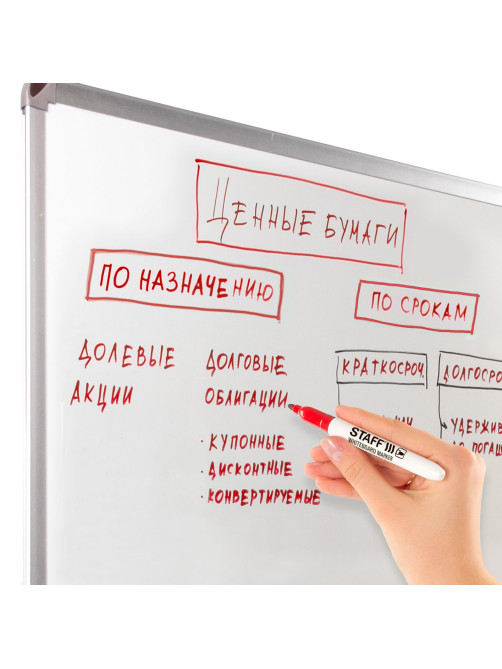 ЦЕННЫЕ БУМАГИ
ПО НАЗНАЧЕНИЮ
ПО СРОКАМ
ДОЛЕВЫЕ
АКЦИИ
ДОЛГОВЫЕ
ОБЛИГАЦИИ
· КУПОННЫЕ
· ДИСКОНТНЫЕ
· КОНВЕРТИРУЕМЫЕ
КРАТКОСРОЧ.
ДОЛГОСРО
УДЕРЖИВ
ДО ПОГАШ
STAFF
WHITEBOARD MARKER